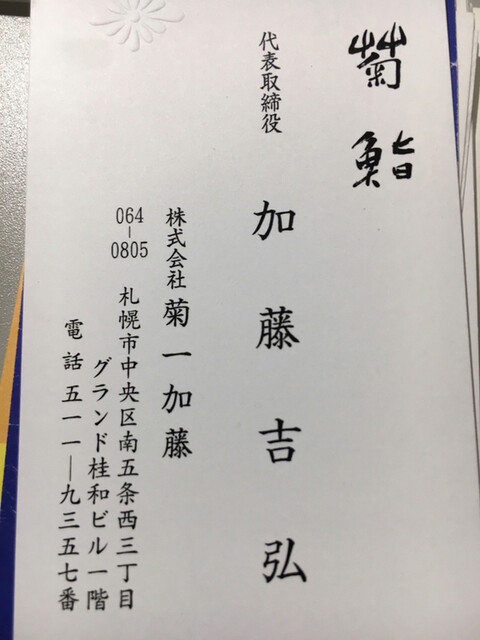 菊鮨
代表取締役
加藤吉弘
株式会社菊一加藤
064-0805
札幌市中央区南五条西三丁目
グランド桂和ビル一階
電話五一一―九三五七番